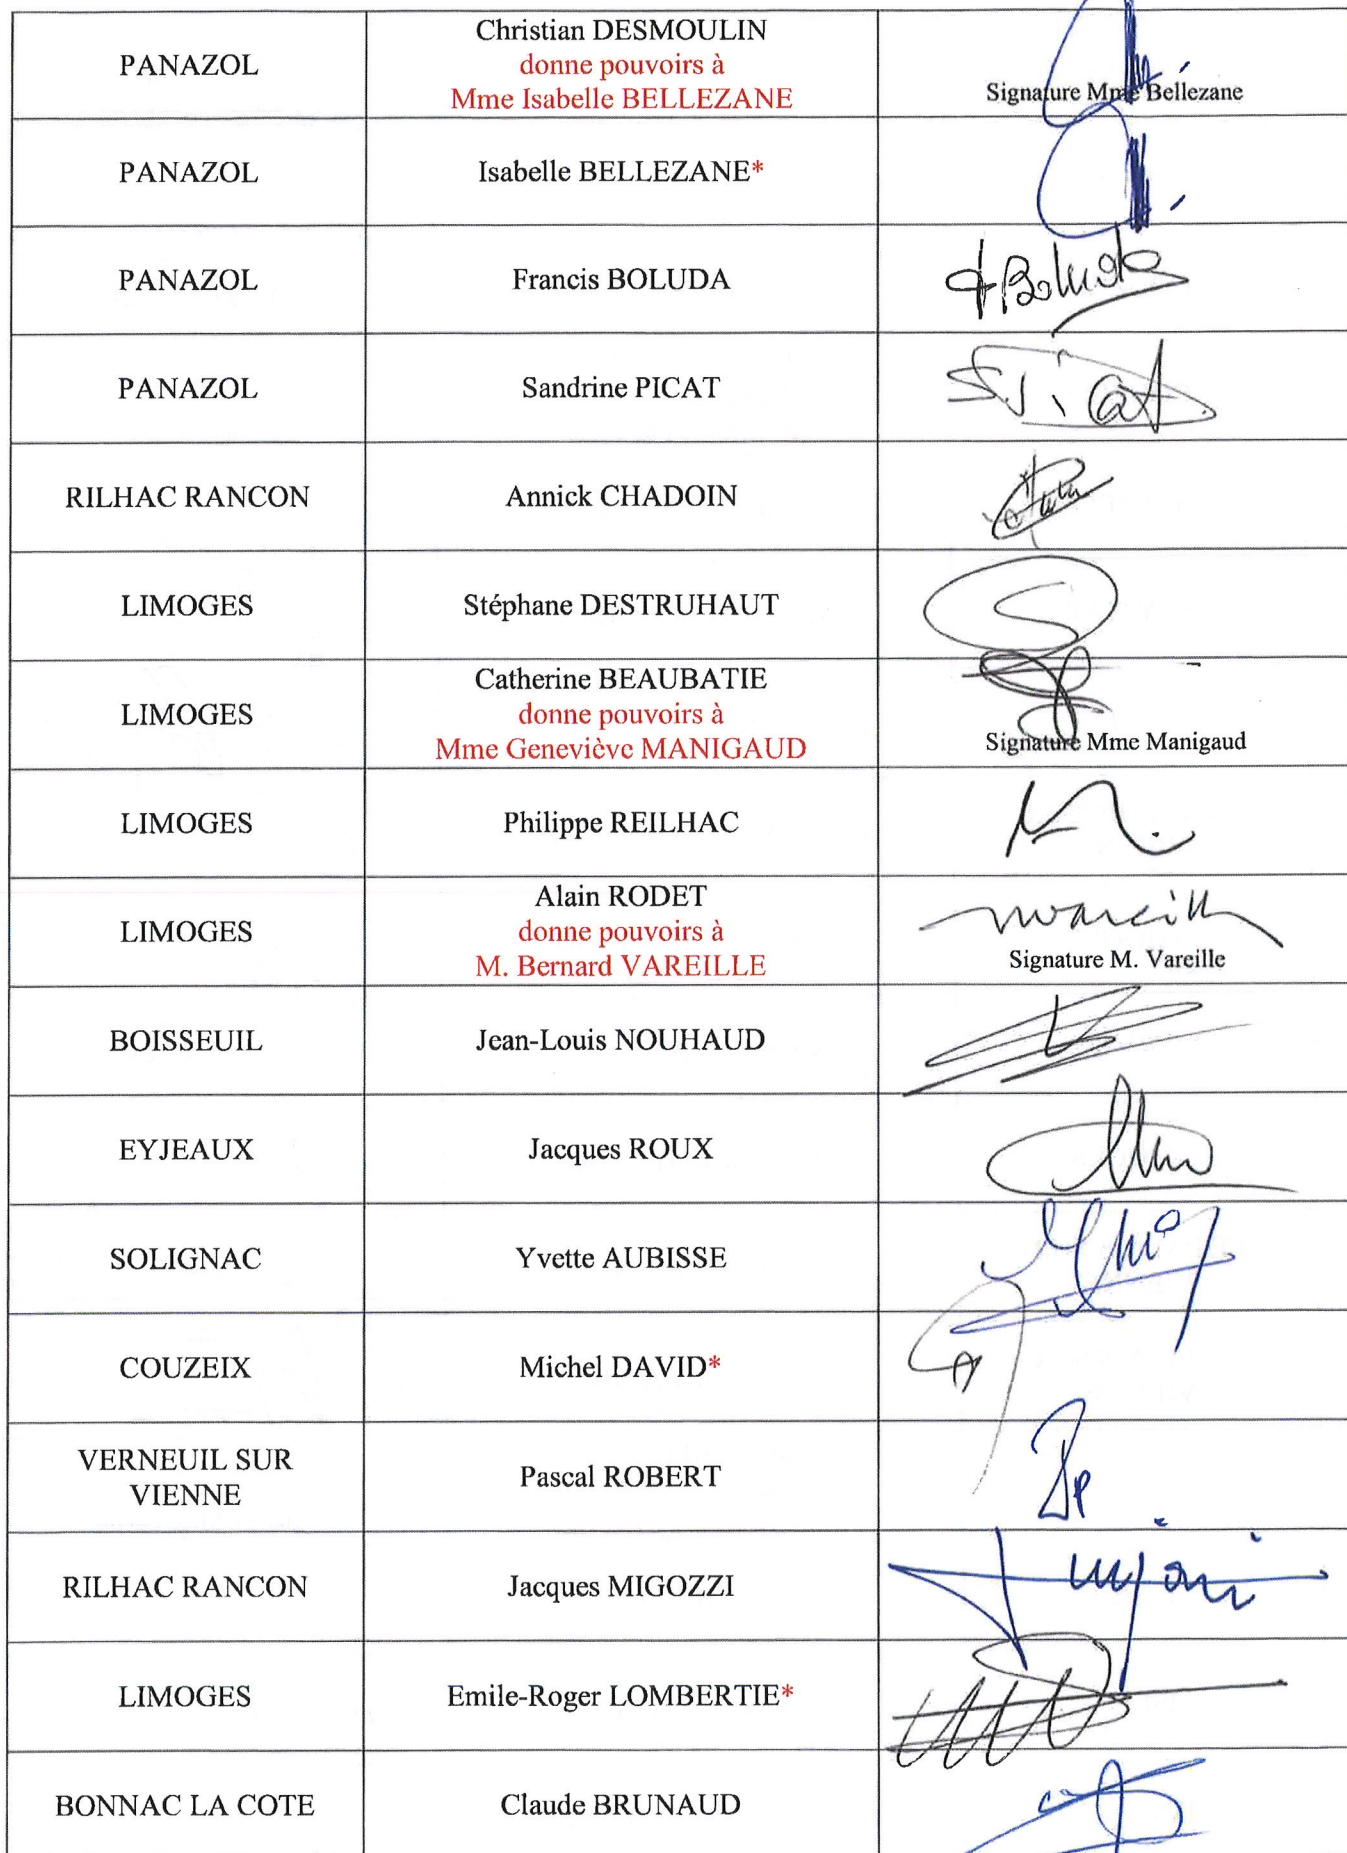 PANAZOL
Christian DESMOULIN
donne pouvoirs à
Mme Isabelle BELLEZANE
Signature Mme Bellezane
PANAZOL
Isabelle BELLEZANE*
PANAZOL
Francis BOLUDA
F Boluda
PANAZOL
Sandrine PICAT
S. Picat
RILHAC RANCON
Annick CHADOIN
LIMOGES
Stéphane DESTRUHAUT
LIMOGES
Catherine BEAUBATIE
donne pouvoirs à
Mme Geneviève MANIGAUD
Signature Mme Manigaud
LIMOGES
Philippe REILHAC
LIMOGES
Alain RODET
donne pouvoirs à
M. Bernard VAREILLE
Signature M. Vareille
BOISSEUIL
Jean-Louis NOUHAUD
EYJEAUX
Jacques ROUX
SOLIGNAC
Yvette AUBISSE
COUZEIX
Michel DAVID*
VERNEUIL SUR
VIENNE
Pascal ROBERT
RILHAC RANCON
Jacques MIGOZZI
LIMOGES
Emile-Roger LOMBERTIE*
BONNAC LA COTE
Claude BRUNAUD